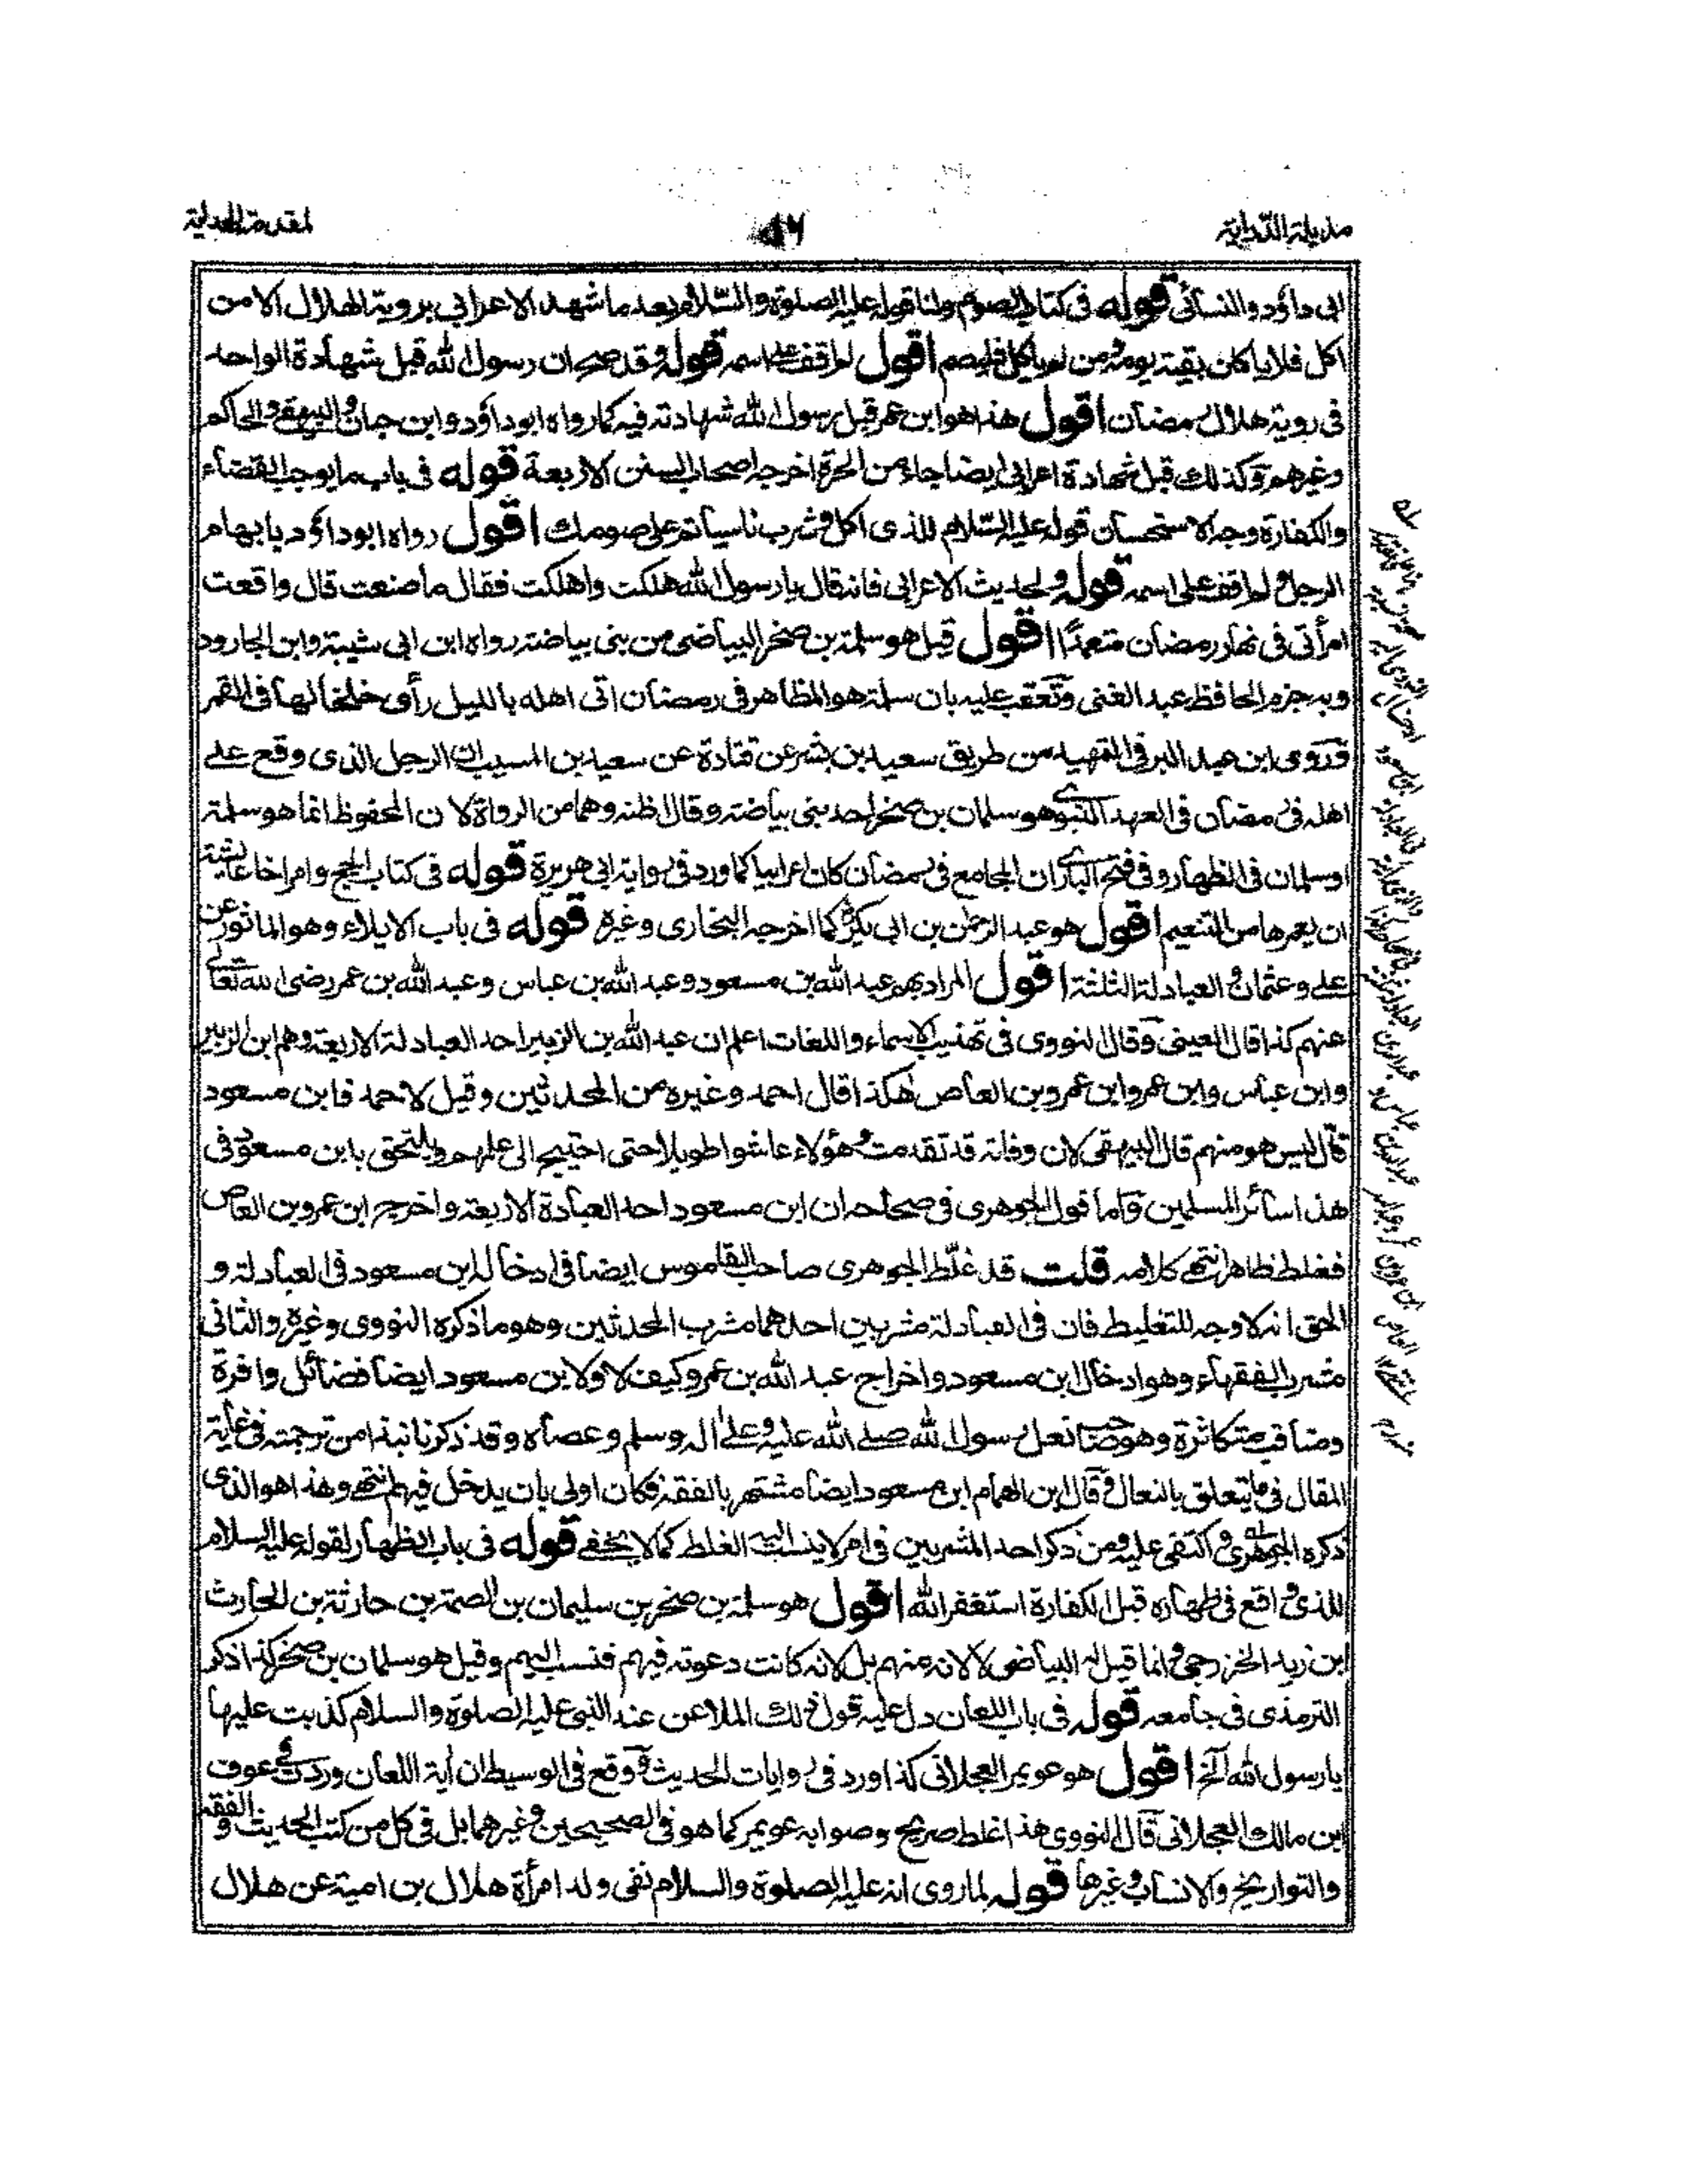 مذيلة الدراية
٥٦
لمقدمة الهداية
ابى داؤد والنسائى قوله فى كتاب الصوم ولنا قوله عليه الصلوة والسّلام بعد ما شهد الاعرابي بروية الهلال الا من
اكل فلا ياكلن بقية يومه ومن لم ياكل فليصم اقول لم اقف على اسمه قوله وقد صح ان رسول الله قبل شهادة الواحد
فى روية هلال رمضان اقول هذا هو ابن عمر قبل رسول الله شهادته فيه كما رواه ابو داؤد وابن حبان والبيهقي والحاكم
وغيرهم وكذلك قبل شهادة اعرابي ايضا جاء من الحرة اخرجه اصحاب السنن الاربعة قوله فى باب ما يوجب القضاء
والكفارة وجه الاستحسان قوله عليه السّلام للذى اكل وشرب ناسيا تم على صومك اقول رواه ابو داؤد بابهام
الرجل ولم اقف على اسمه قوله ولحديث الاعرابى فانه قال يا رسول الله هلكت واهلكت فقال ما صنعت قال واقعت
امرأتى فى نهار رمضان متعمدًا اقول قيل هو سلمة بن صخر البياضى من بنى بياضة رواه ابن ابى شيبة وابن الجارود
وبه جزم الحافظ عبد الغنى وتعقب عليه بان سلمة هو المظاهر فى رمضان اتى اهله بالليل رأى خلخالها فى القمر
وروى ابن عبد البر فى التمهيد من طريق سعيد بن بشر عن قتادة عن سعيد بن المسيب ان الرجل الذى وقع على
اهله فى رمضان فى العهد النبوى هو سلمان بن صخر احد بنى بياضة وقال اظنه وهما من الرواة لان المحفوظ انما هو سلمة
او سلمان فى الظهار وفى فتح البارى ان المجامع فى رمضان كان اعرابيا كما ورد فى رواية ابى هريرة قوله فى كتاب الحج وامر اخا عائشة
ان يعمرها من التنعيم اقول هو عبد الرحمن بن ابى بكر كما اخرجه البخارى وغيره قوله فى باب الايلاء وهو الماثور عن
على وعثمان والعبادلة الثلثة اقول المراد بهم عبد الله بن مسعود وعبد الله بن عباس وعبد الله بن عمر رضى الله تعالى
عنهم كذا قال العينى وقال النووى فى تهذيب الاسماء واللغات اعلم ان عبد الله بن الزبير احد العبادلة الاربعة وهم ابن الزبير
وابن عباس وابن عمر وابن عمرو بن العاص هكذا قال احمد وغيره من المحدثين وقيل لاحمد فابن مسعود
قال ليس هو منهم قال البيهقى لان وفاته قد تقدمت وهؤلاء عاشوا طويلا حتى احتيج الى علمهم ويلتحق بابن مسعود فى
هذا سائر المسلمين واما قول الجوهرى فى صحاحه ان ابن مسعود احد العبادة الاربعة واخرج ابن عمرو بن العاص
فغلط ظاهر انتهى كلامه قلت قد غلّط الجوهرى صاحب القاموس ايضا فى ادخاله ابن مسعود فى العبادلة و
الحق انه لا وجه للتغليط فان فى العبادلة مشربين احدهما مشرب المحدثين وهو ما ذكره النووى وغيره والثانى
مشرب الفقهاء وهو ادخال ابن مسعود واخراج عبد الله بن عمرو كيف لا ولابن مسعود ايضا فضائل وافرة
ومناقب متكاثرة وهو صاحب نعل رسول الله صلى الله عليه وعلى اله وسلم وعصاه وقد ذكرنا نبذا من ترجمته فى غاية
المقال فى ما يتعلق بالنعال وقال ابن الهمام ابن مسعود ايضا مشتهر بالفقه فكان اولى بان يدخل فيهم انتهى وهذا هو الذى
ذكره الجوهرى واكتفى عليه ومن ذكر احد المشربين فى امر لا ينسب اليه الغلط كما لا يخفى قوله فى باب الظهار لقوله عليه السلام
للذى واقع فى ظهاره قبل الكفارة استغفر الله اقول هو سلمة بن صخر بن سليمان بن الصمة بن حارثة بن الحارث
ابن زيد الخزرجى وانما قيل له البياضى لا لانه منهم بل لانه كانت دعوته فيهم فنسب اليهم وقيل هو سلمان بن صخر كذا ذكر
الترمذى فى جامعه قوله فى باب اللعان دل عليه قول ذلك الملاعن عند النبى عليه الصلوة والسلام كذبت عليها
يا رسول الله الخ اقول هو عويمر العجلانى كذا ورد فى روايات الحديث ووقع فى الوسيط ان آية اللعان وردت فى عوف
ابن مالك والعجلانى قال النووى هذا غلط صريح وصوابه عويمر كما هو فى الصحيحين وغيرهما بل فى كل من كتب الحديث والفقه
والتواريخ والانساب وغيرها قوله لما روى انه عليه الصلوة والسلام نفى ولد امرأة هلال بن امية عن هلال